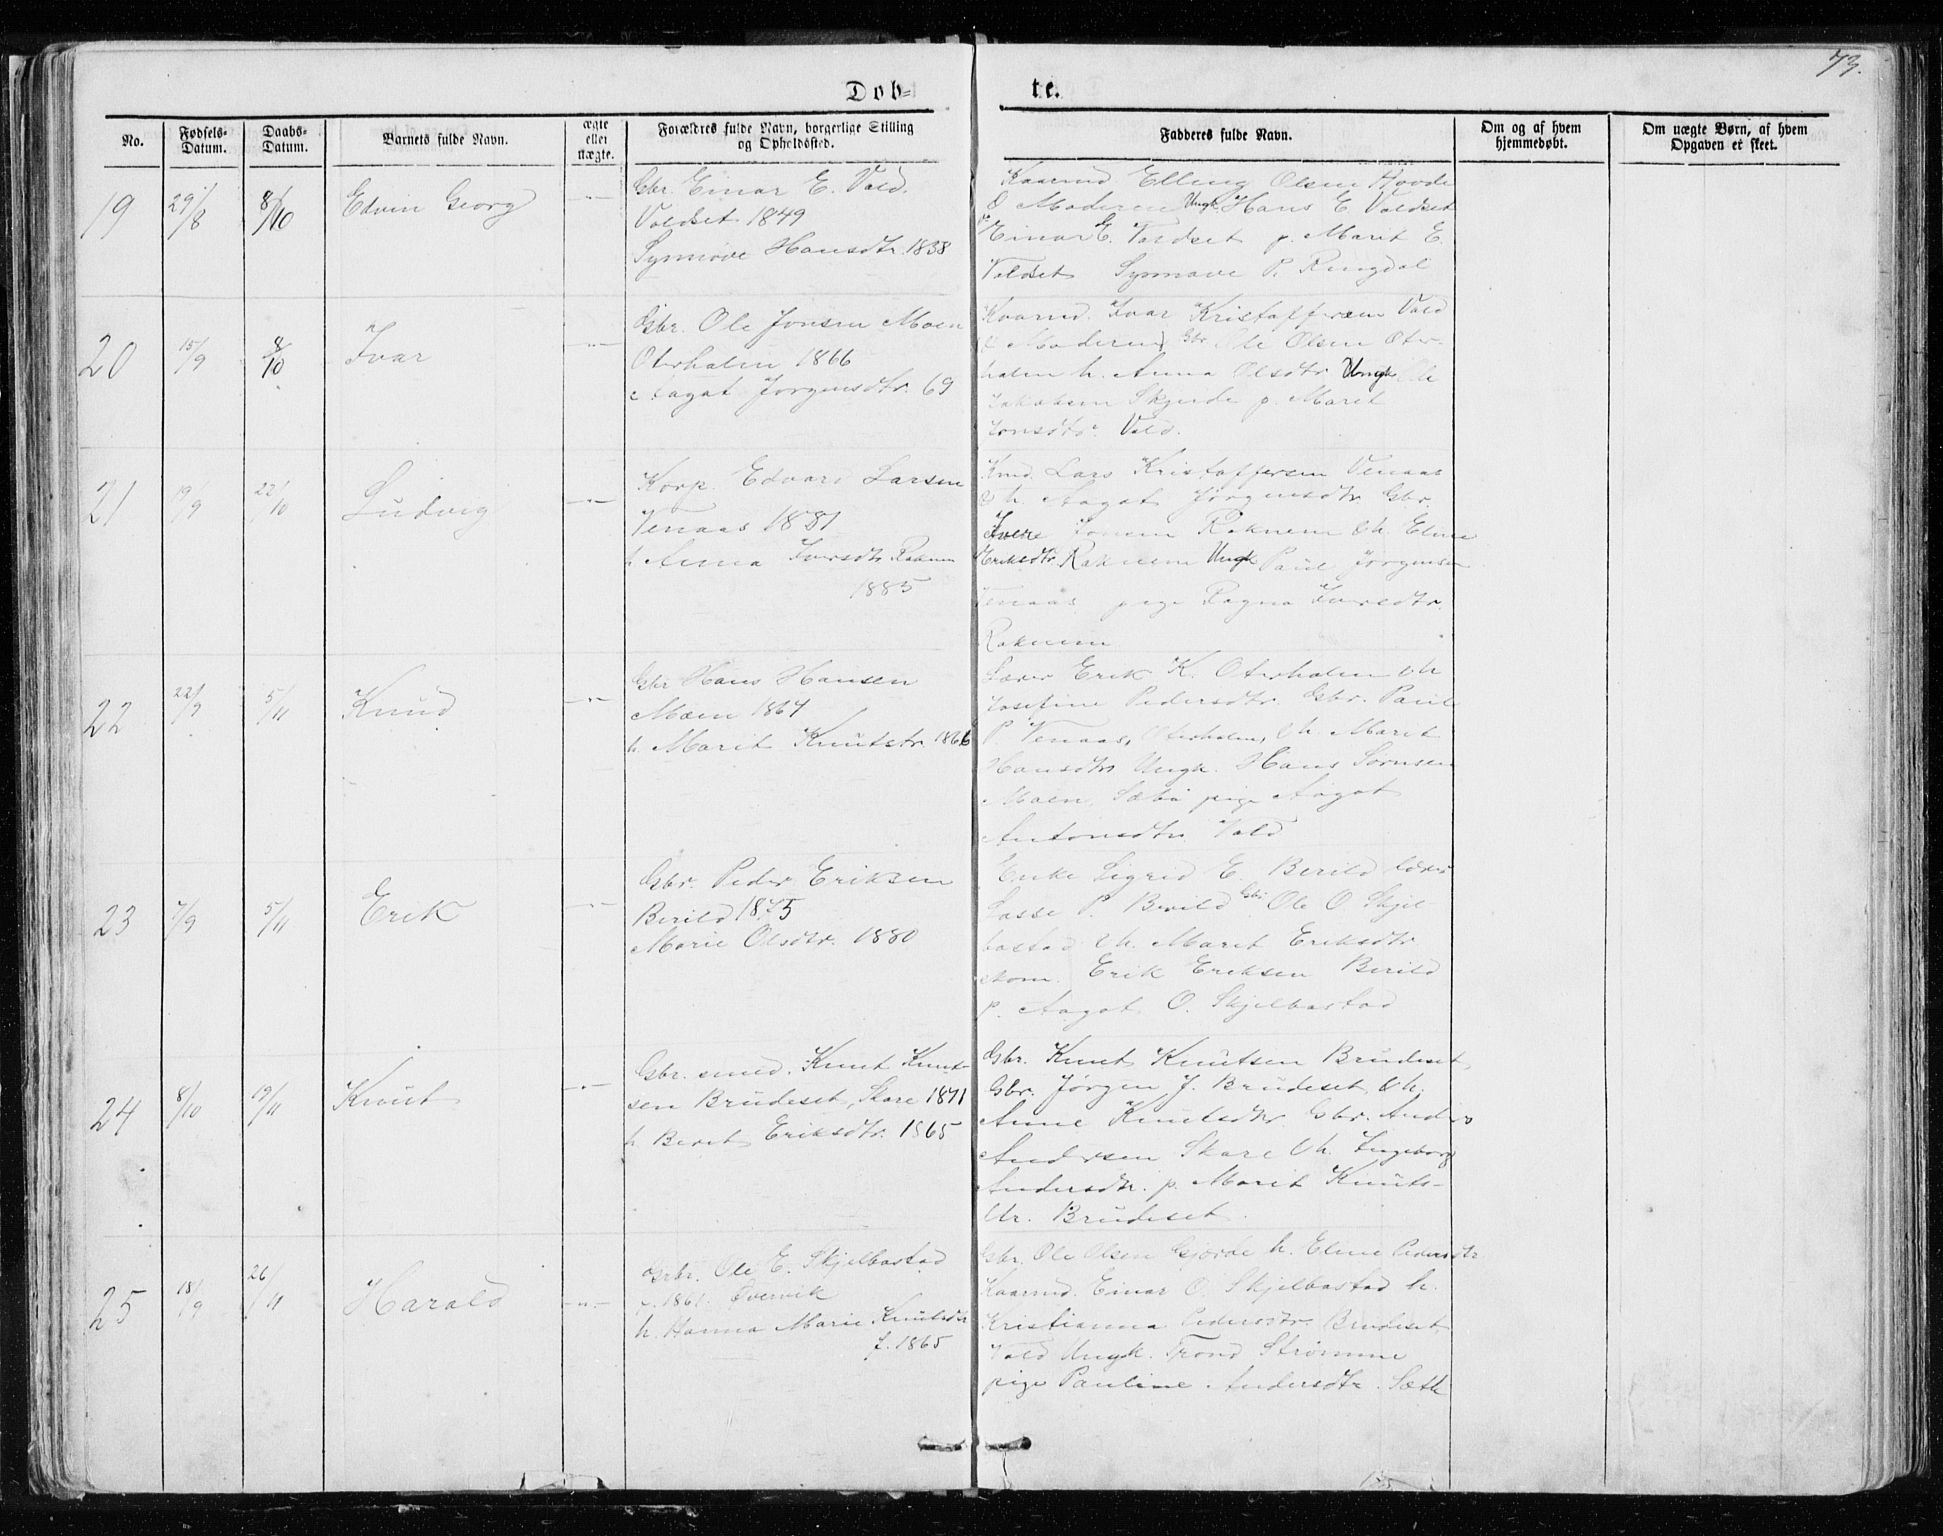 73.
Døb- te.
No.
Fødsels-
Datum.
Daabs-
Datum.
Barnets fulde Navn.
ægte
eller
uægte.
Forældres fulde Navn, borgerlige Stilling
og Opholdssted.
Fadderes fulde Navn.
Om og af hvem
hjemmedøbt.
Om uægte Børn, af hvem
Opgaven er skeet.
19 29/8 8/10 Edvin Georg -"-
Gbr. Einar E. Vold.
Voldset 1849
Synnøve Hansdtr. 1838
Kaarmd Elling Olsen Hovde
& Moderen Ungk Hans E Voldset
Einar E. Voldset p. Marit E.
Voldset Synnøve P. Ringdal
20 15/9 8/10 Ivar -"-
Gbr. Ole Jonsen Moen
Oterholen 1866
Aagot Jørgensdtr. 69
Kaarmd. Ivar Kristoffersen Vold
& Moderen Gbr Ole Olsen Oter-
holen h. Anna Olsdtr Ungk Ole
Jakobsen Skjerde p. Marit
Jonsdtr. Vold.
21 19/9 22/10 Ludvig -"-
Korp. Edvard Larsen
Venaas 1881
h Anna Iversdtr Raknem
1885
Kmd. Lars Kristoffersen Venaas
& h. Aagot Jørgensdtr Gbr.
Iver Jonsen Raknem & h. Eline
Eriksdtr Raknem Ungk Paul Jørgensen
Venaas pige Ragna Iversdtr.
Raknem
22 22/9 5/11 Knud -"-
Gbr Hans Hansen
Moen 1864
h. Marit Knutsdtr 1866
Lærer Erik K. Oterholen & h
Josefine Pedersdtr. Gbr. Paul
P. Venaas, Oterholen, & h. Marit
Hansdtr Ungk. Hans Sørnsen
Moen, Sæbø pige Aagot
Antonsdtr Vold
23 7/9 5/11 Erik -"-
Gbr. Peder Eriksen
Berild 1875
Marie Olsdtr. 1880
Enke Sigrid E. Berild lærer
Lasse P. Berild Gbr. Ole O. Skjel-
bostad & h. Marit Eriksdtr
skom. Erik Eriksen Berild
p. Aagot O. Skjelbostad
24 8/10 19/11 Knut -"-
Gbr. smed. Knut Knut-
sen Brudeset, Skare 1871
h Beret Eriksdtr. 1865
Gbr. Knut Knutsen Brudeset,
Gbr. Jørgen J. Brudeset & h.
Anne Knutsdtr Gbr. Anders
Andersen Skare & h. Ingeborg
Andersdtr. p. Marit Knuts-
dtr. Brudeset.
25 18/9 26/11 Harald -"-
Gbr. Ole E. Skjelbostad
f. 1861. Øvervik
h. Hanna Marie Knutsdtr
f. 1865
Gbr. Ole Olsen Gjærde h. Eline Pedersdtr
Kaarmd. Einar O. Skjelbostad h.
Kristianna Pedersdtr. Brudeset
Vold Ungk. Trond Strømme
pige Pauline Andersdtr. Sæth